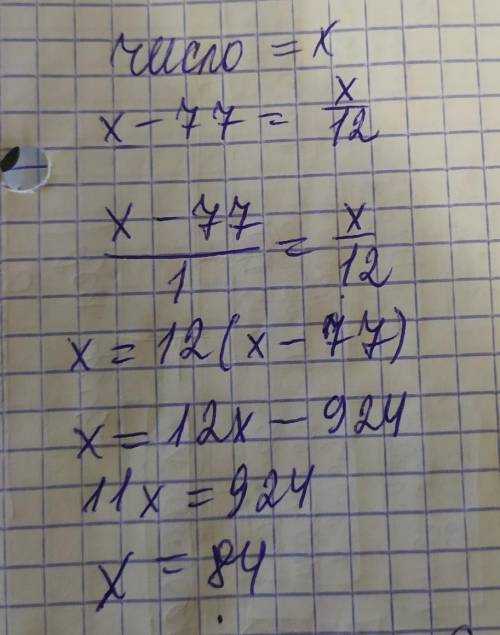 число = x
x - 77 = x/12
x - 77/1 = x/12
x = 12(x - 77)
x = 12x - 924
11x = 924
x = 84